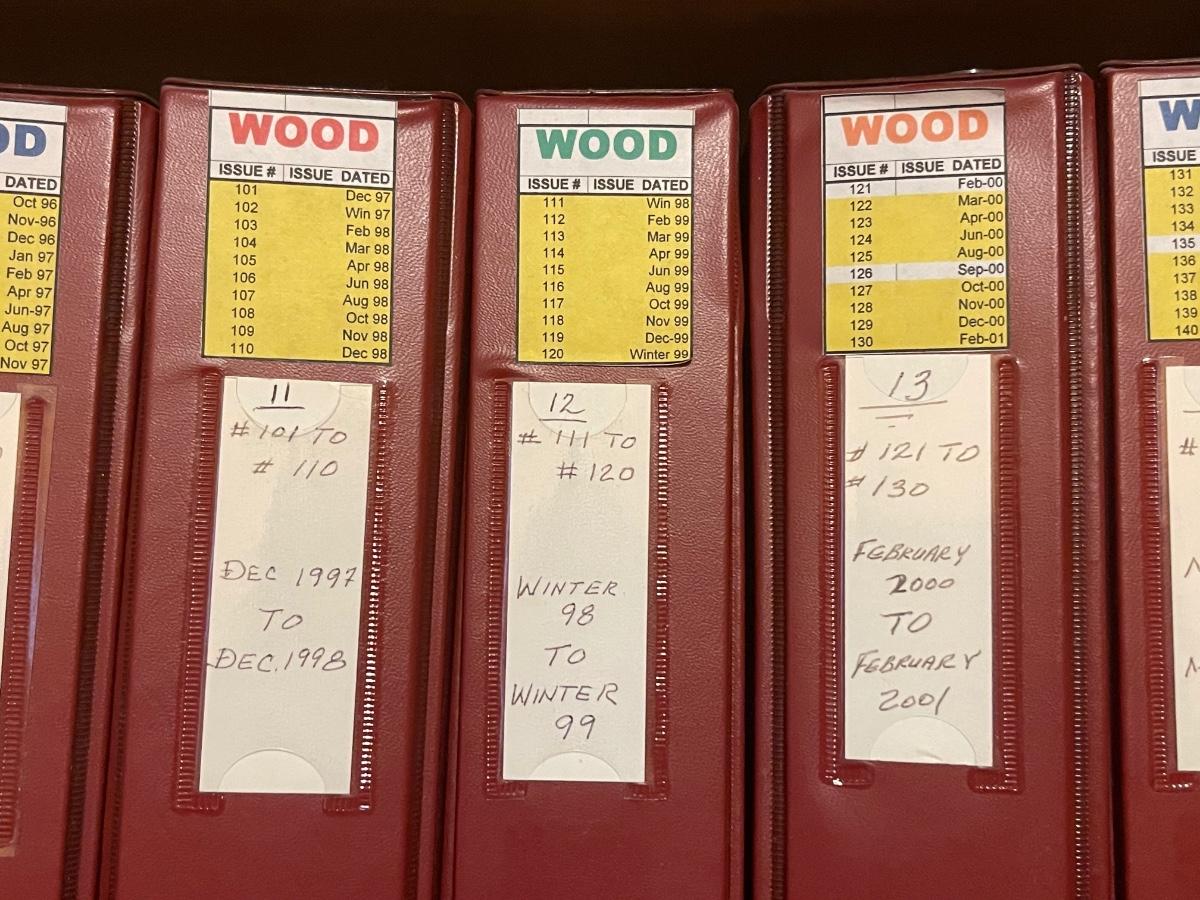 OD
DATED
Oct 96
Nov-96
Dec 96
Jan 97
Feb 97
Apr 97
Jun-97
Aug 97
Oct 97
Nov 97
WOOD
ISSUE # ISSUE DATED
101 Dec 97
102 Win 97
103 Feb 98
104 Mar 98
105 Apr 98
106 Jun 98
107 Aug 98
108 Oct 98
109 Nov 98
110 Dec 98
11
# 101 TO
# 110
DEC 1997
TO
DEC. 1998
WOOD
ISSUE # ISSUE DATED
111 Win 98
112 Feb 99
113 Mar 99
114 Apr 99
115 Jun 99
116 Aug 99
117 Oct 99
118 Nov 99
119 Dec-99
120 Winter 99
12
# 111 TO
# 120
WINTER
98
TO
WINTER
99
WOOD
ISSUE # ISSUE DATED
121 Feb-00
122 Mar-00
123 Apr-00
124 Jun-00
125 Aug-00
126 Sep-00
127 Oct-00
128 Nov-00
129 Dec-00
130 Feb-01
13
# 121 TO
# 130
FEBRUARY
2000
TO
FEBRUARY
2001
W
ISSUE
131
132
133
134
135
136
137
138
139
140
#